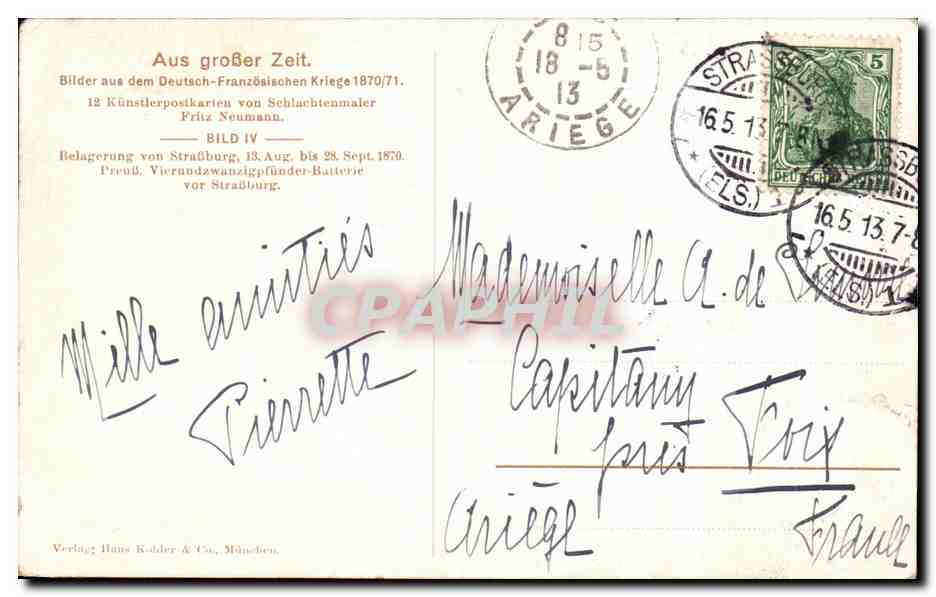 Aus großer Zeit.
Bilder aus dem Deutsch-Französischen Kriege 1870/71.
12 Künstlerpostkarten von Schlachtenmaler
Fritz Neumann.
BILD IV
Belagerung von Straßburg, 13. Aug. bis 28. Sept. 1870.
Preuß. Vierundzwanzigpfünder-Batterie
vor Straßburg.
8 15
18 - 5
13
ARIEGE
STRASSBURG
16.5.13.
(ELS.)
5
DEUTSCHES
16.5.13.7-8
(ELS.)
Mille amitiés
Pierrette
Mademoiselle A. de
Capitany
près Foix
Ariège France
CPAPHIL
Verlag: Hans Kohler & Co., München.